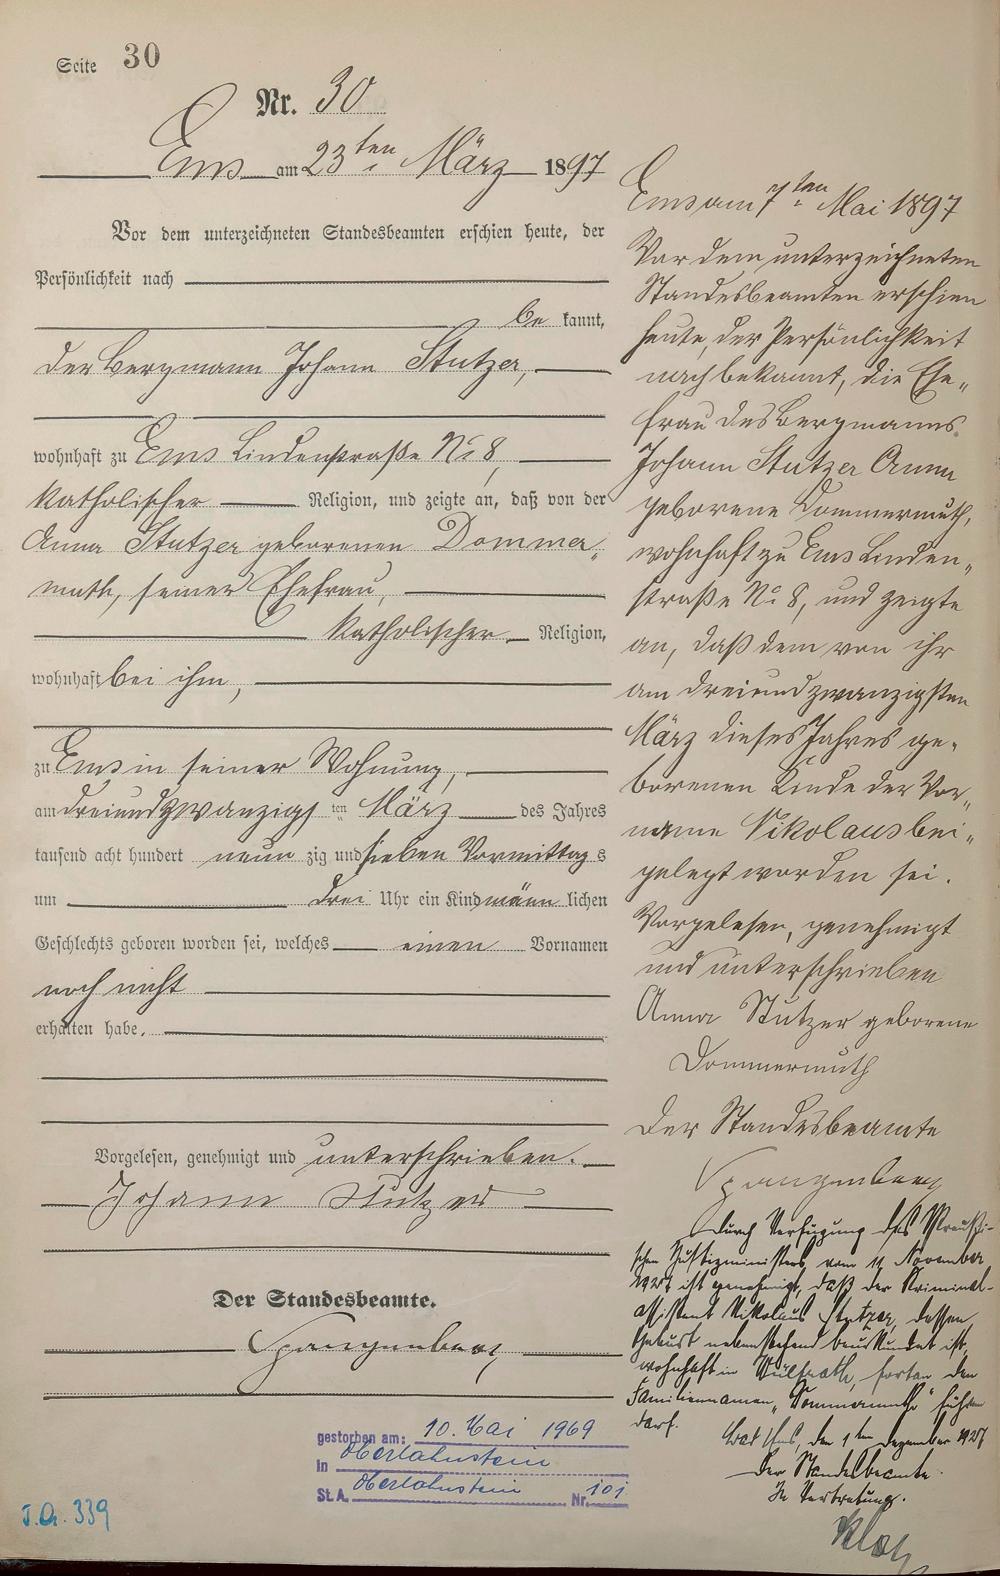 Seite 30
Nr. 30
Ems am 23ten März 1897
Vor dem unterzeichneten Standesbeamten erschien heute, der
Persönlichkeit nach
be kannt,
der Bergmann Johann Stutzer,
wohnhaft zu Ems Lindenstraße No 8,
katholischer Religion, und zeigte an, daß von der
Anna Stutzer geborenen Dommer„
muth, seiner Ehefrau,
katholischer Religion,
wohnhaft bei ihm,
zu Ems in seiner Wohnung,
am dreiundzwanzigs ten März des Jahres
tausend acht hundert neun zig und sieben Vormittag s
um drei Uhr ein Kind männ lichen
Geschlechts geboren worden sei, welches einen Vornamen
noch nicht
erhalten habe.
Vorgelesen, genehmigt und unterschrieben.
Johann Stutzer
Der Standesbeamte.
Spangenberg
gestorben am: 10. Mai 1969
in Oberlahnstein
St.A. Oberlahnstein Nr. 101
J.A. 339
Ems am 7ten Mai 1897
Vor dem unterzeichneten
Standesbeamten erschien
heute, der Persönlichkeit
nach bekannt, die Ehe„
frau des Bergmanns
Johann Stutzer Anna
geborene Dommermuth,
wohnhaft zu Ems Linden„
straße No 8, und zeigte
an, daß dem von ihr
am dreiundzwanzigsten
März dieses Jahres ge„
borenen Kinde der Vor„
name Nikolaus bei„
gelegt worden sei.
Vorgelesen, genehmigt
und unterschrieben
Anna Stutzer geborene
Dommermuth
Der Standesbeamte
Spangenberg
Durch Verfügung des Preußi-
schen Justizministers vom 11 November
1927 ist genehmigt, daß der Kriminal-
assistent Nikolaus Stutzer, dessen
Geburt nebenstehend beurkundet ist,
wohnhaft in Wülfrath, fortan den
Familiennamen „Dommermuth" führen
darf.
Bad Ems, den 1ten Dezember 1927
Der Standesbeamte.
In Vertretung.